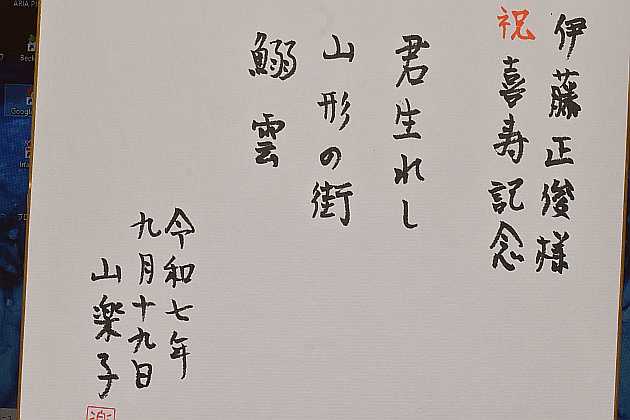 伊藤正俊様
祝喜寿記念
君生れし
山形の街
鰯雲
令和七年
九月十九日
山楽子
楽
ARIA PI
Beck
Google